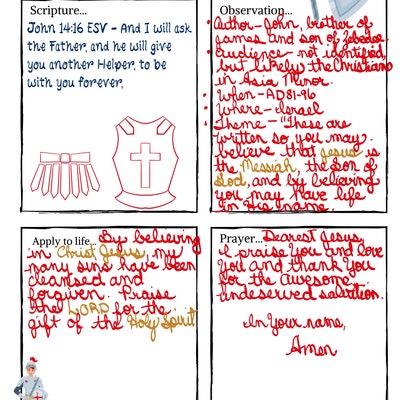 Scripture...
John 14:16 ESV - And I will ask
the Father, and he will give
you another Helper, to be
with you forever,
Observation...
• Author-John, brother of
James and son of Zebedee.
• Audience - not identified,
but likely the Christians
in Asia Minor.
• When-AD81-96
• Where-Israel
• Theme-"These are
written so you may
believe that Jesus is
the Messiah, the Son of
God, and by believing
you may have life
in His name.
Apply to life...
By believing
in Christ Jesus, my
many sins have been
cleansed and
forgiven. Praise
the LORD for the
gift of the Holy Spirit
Prayer...
Dearest Jesus,
I praise You and love
You and thank You
for the awesome
undeserved salvation.
In Your name,
Amen